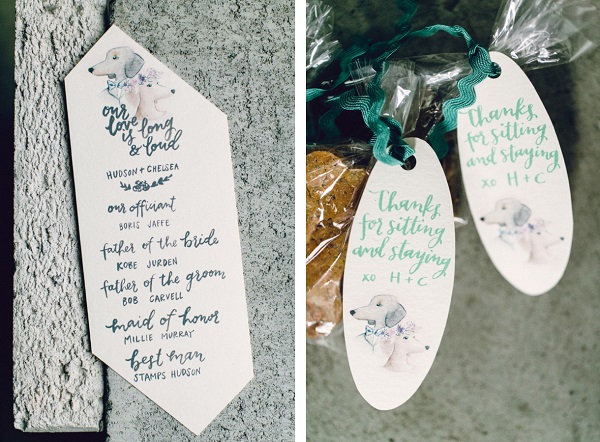 our
love is long
& loud
HUDSON + CHELSEA
our offinant
BORIS JAFFE
father of the bride
KOBE JURDEN
father of the groom
BOB CARVELL
maid of honor
MILLIE MURRAY
best man
STAMPS HUDSON
Thanks
for sitting
and staying
xo H + C
Thanks
for sitting
and staying
xo H + C